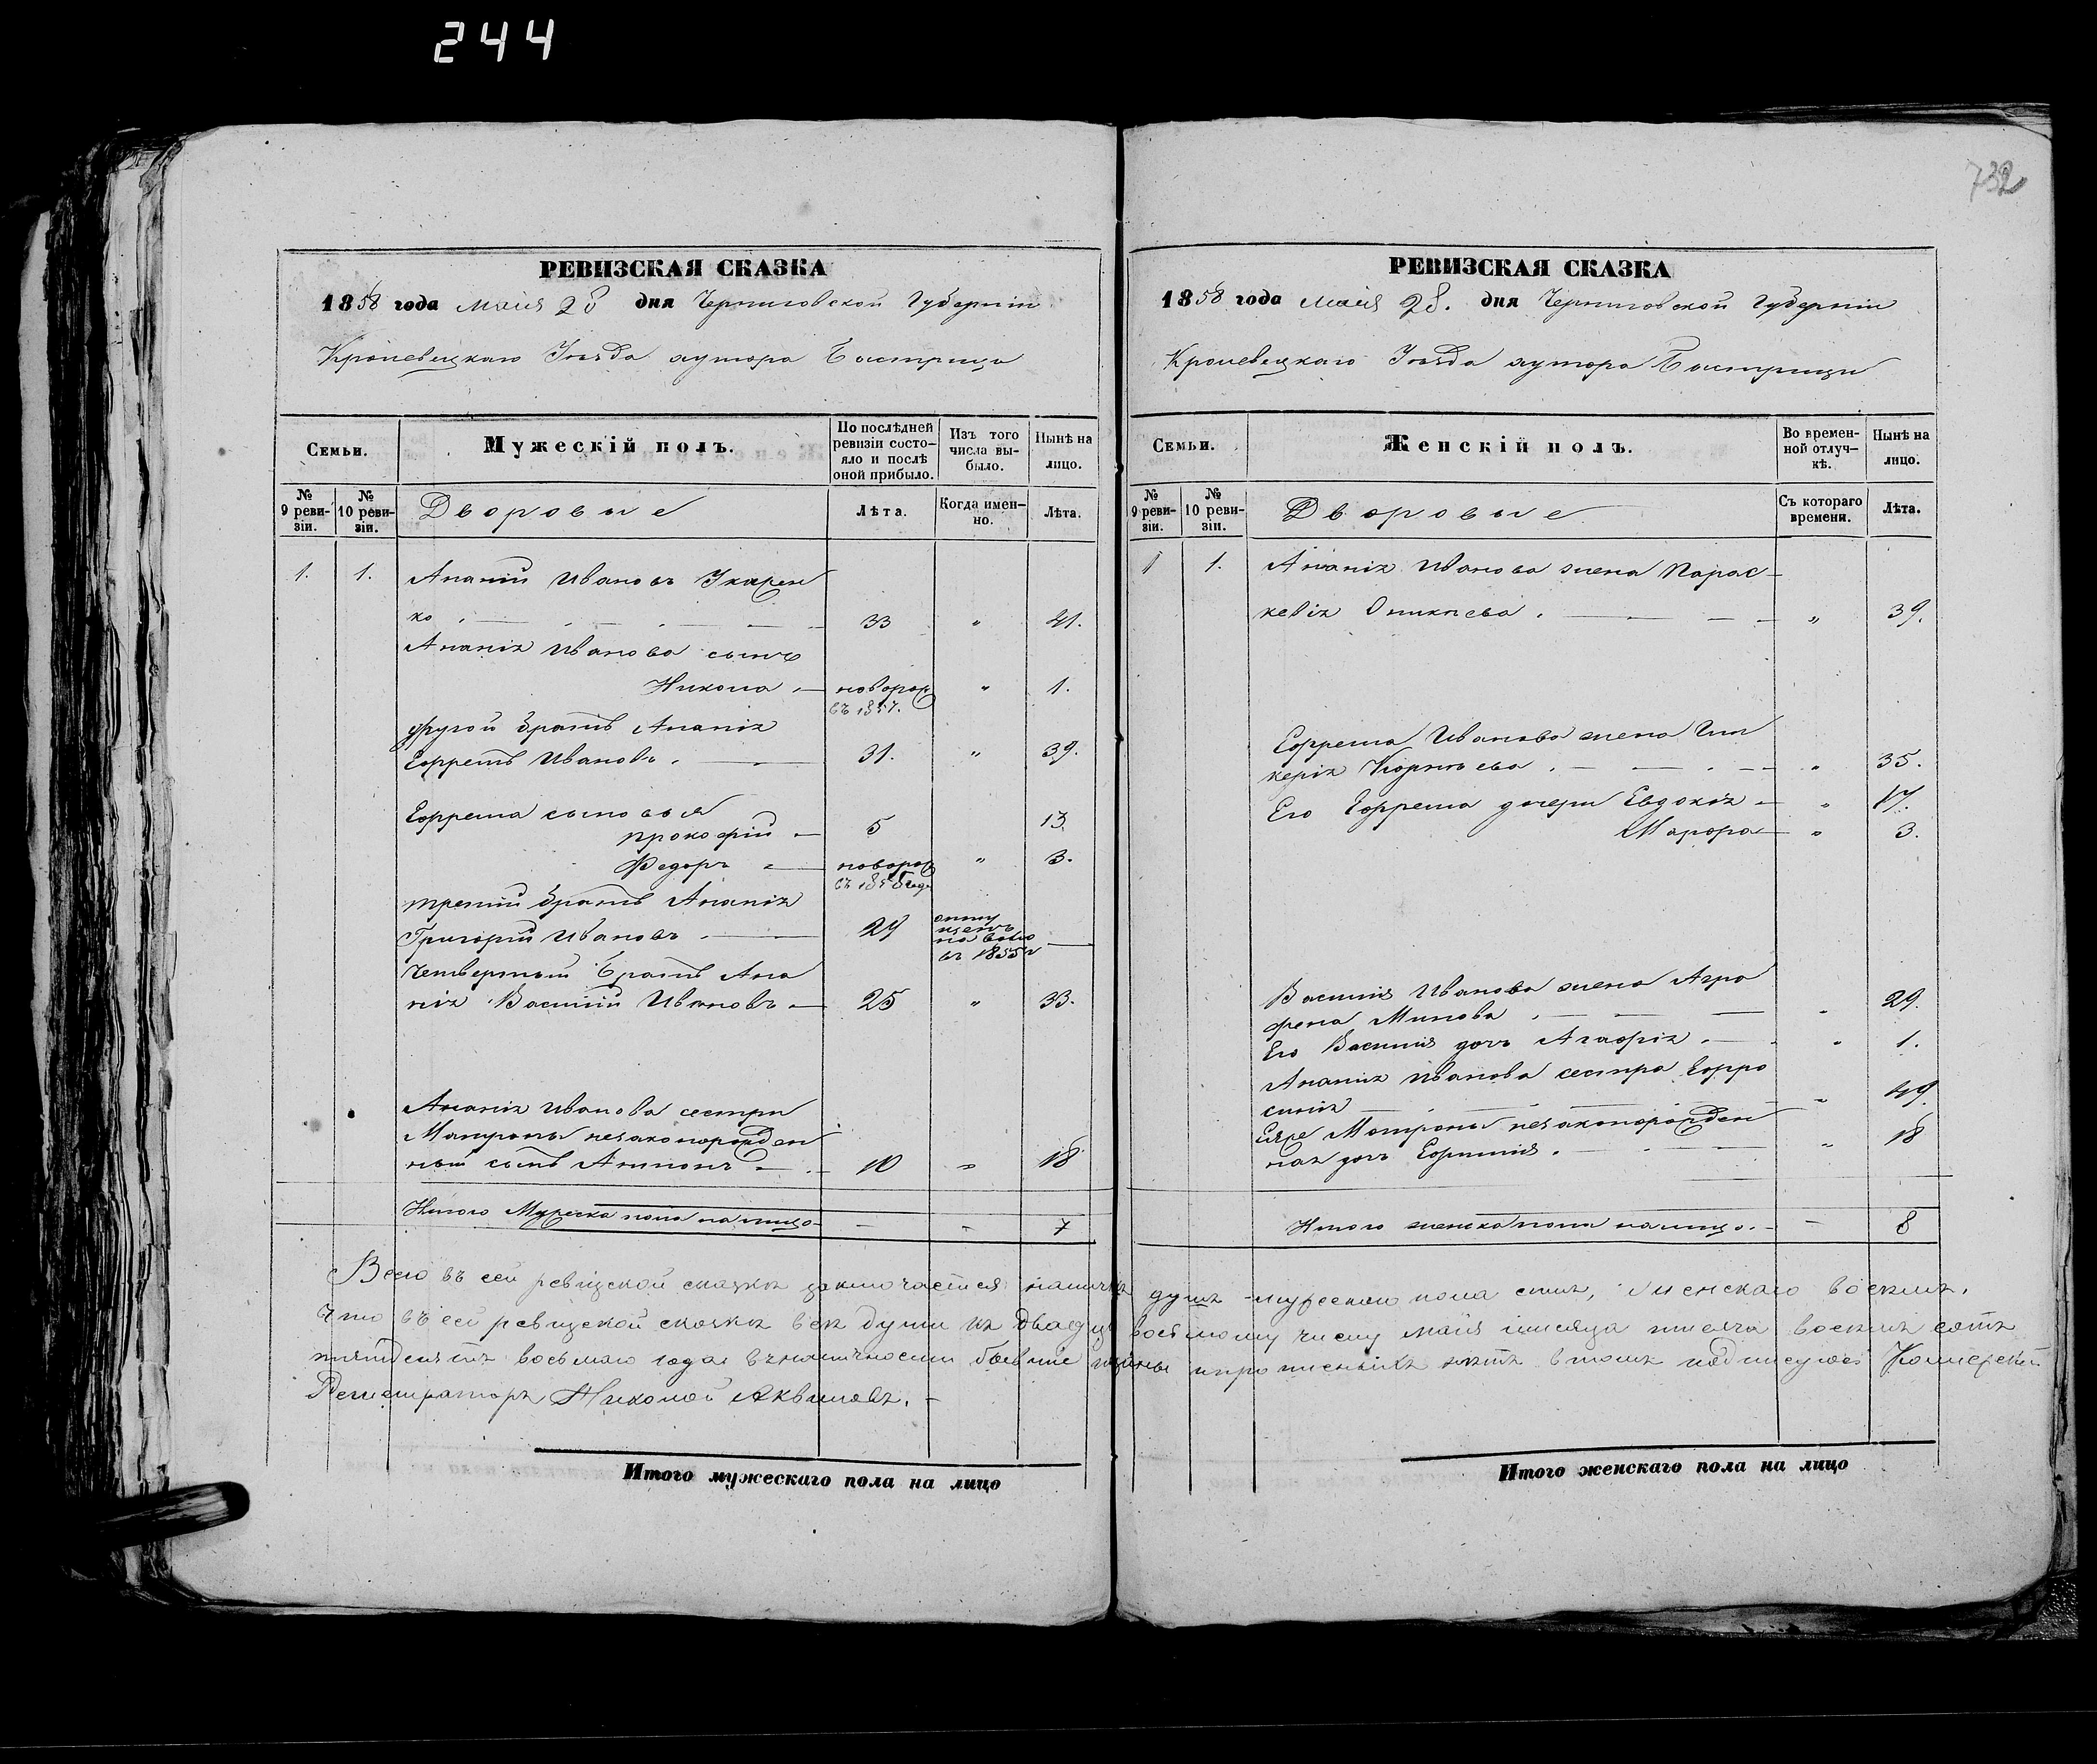 244
732
РЕВИЗСКАЯ СКАЗКА
1858 года Маія 28 дня Черниговской Губерніи
Кролевецкаго Уѣзда хутора Быстрици
Семьи.
Мужескій полъ.
По послѣдней ревизіи состо-
яло и послѣ оной прибыло.
Изъ того числа вы-
было.
Нынѣ на лицо.
№ 9 реви-
зіи.
№ 10 реви-
зіи.
Дворовые
Лѣта.
Когда имен-
но.
Лѣта.
1. 1. Ананій Ивановъ
ко 33 " 41.
Ананія Иванова сынъ
Никола новорож " 1.
въ 1857.
Другой братъ Ананія
Ефремъ Ивановъ. 31. " 39.
Ефрема сыновья
Прокофій 5 13
Федоръ новорож " 3.
третій братъ Ананія
Григорій Ивановъ 29 отпу
щенъ
на волю
въ 1855 г
Четвертый братъ Ана
нія Василій Ивановъ 25 " 33.
Ананія Иванова сестры
Матроны незаконорожден
ный сынъ Антонъ 10 " 18
Итого Мужеска пола на лицо 7
РЕВИЗСКАЯ СКАЗКА
1858 года Маія 28. дня Черниговской Губерніи
Кролевецкаго Уѣзда хутора Быстрици
Семьи.
Женскій полъ.
Во времен-
ной отлуч-
кѣ.
Нынѣ на лицо.
№ 9 реви-
зіи.
№ 10 реви-
зіи.
Дворовые
Съ котораго времени.
Лѣта.
1 1. Ананія Иванова жена Парас-
кевія " 39.
Ефрема Иванова жена Гли
керія Корнѣева. " 35.
Его Ефрема дочери Евдокія " 17.
Марфа " 3.
Василія Иванова жена Агра
фена Минова 29.
Его Василія дочь Агафія. " 1.
Ананія Иванова сестра Ефро
синія " 49.
Матроны незаконорожден
ная дочь Ефимія. " 18
Итого женска пола на лицо. 8
Всего въ сей ревизской сказкѣ заключается наличныхъ душъ мужескаго пола семь, женскаго восемь,
Что въ сей ревизской сказкѣ всѣ души къ двадцать восьмому числу Маія мѣсяца тысяча восемь сотъ
пятдесятъ восьмого года въ наличности бывшіе прописныхъ нѣтъ въ томъ подписуюсь
Регистраторъ Николай
Итого мужескаго пола на лицо
Итого женскаго пола на лицо